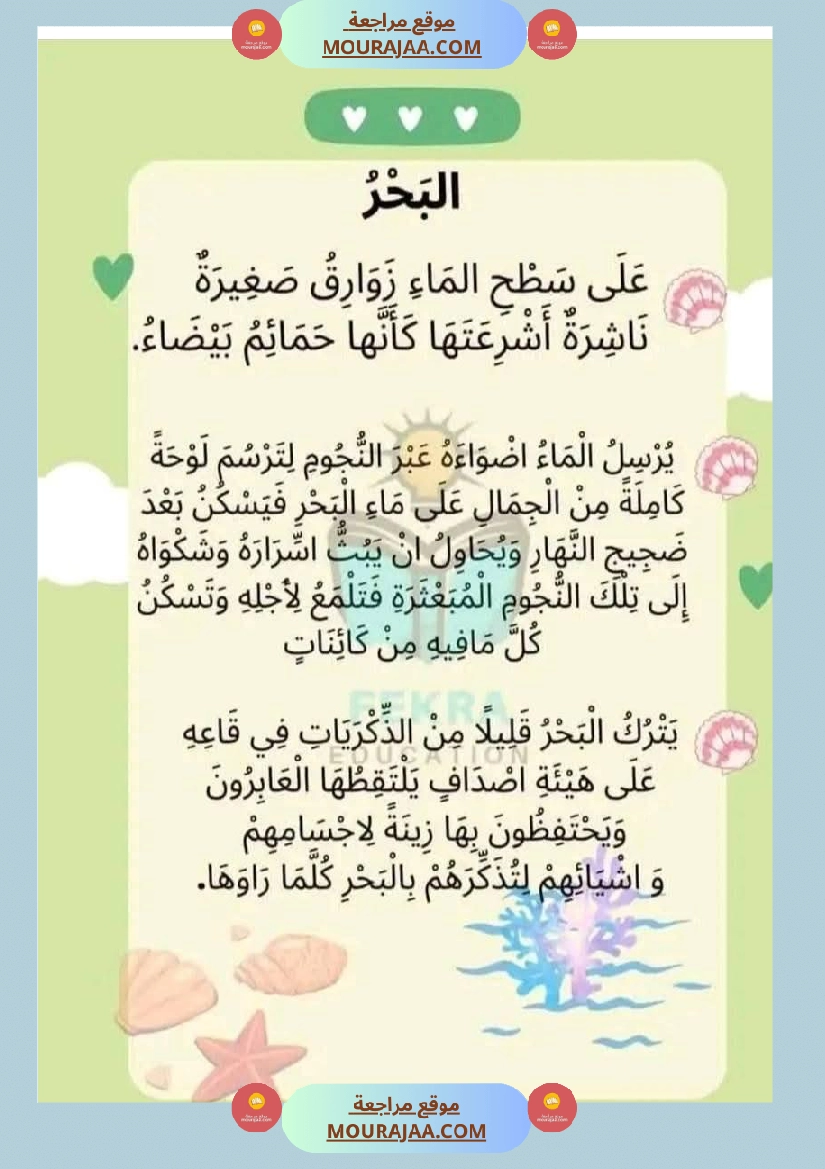 موقع مراجعة
MOURAJAA.COM
البَحْرُ
عَلَى سَطْحِ المَاءِ زَوَارِقُ صَغِيرَةٌ
نَاشِرَةٌ أَشْرِعَتَهَا كَأَنَّها حَمَائِمُ بَيْضَاءُ.
يُرْسِلُ الْمَاءُ اضْوَاءَهُ عَبْرَ النُّجُومِ لِتَرْسُمَ لَوْحَةً
كَامِلَةً مِنْ الْجِمَالِ عَلَى مَاءِ الْبَحْرِ فَيَسْكُنُ بَعْدَ
ضَجِيجِ النَّهَارِ وَيُحَاوِلُ انْ يَبُثُّ اسِّرَارَهُ وَشَكْوَاهُ
إِلَى تِلْكَ النُّجُومِ الْمُبَعْثَرَةِ فَتَلْمَعُ لِأَجْلِهِ وَتَسْكُنُ
كُلَّ مَافِيهِ مِنْ كَائِنَاتٍ
FEKRA
EDUCATION
يَتْرُكُ الْبَحْرُ قَلِيلًا مِنْ الذِّكْرَيَاتِ فِي قَاعِهِ
عَلَى هَيْئَةِ اصْدَافٍ يَلْتَقِطُهَا الْعَابِرُونَ
وَيَحْتَفِظُونَ بِهَا زِينَةً لِاجْسَامِهِمْ
وَ اشْيَائِهِمْ لِتُذَكِّرَهُمْ بِالْبَحْرِ كُلَّمَا رَاوَهَا.
موقع مراجعة
MOURAJAA.COM